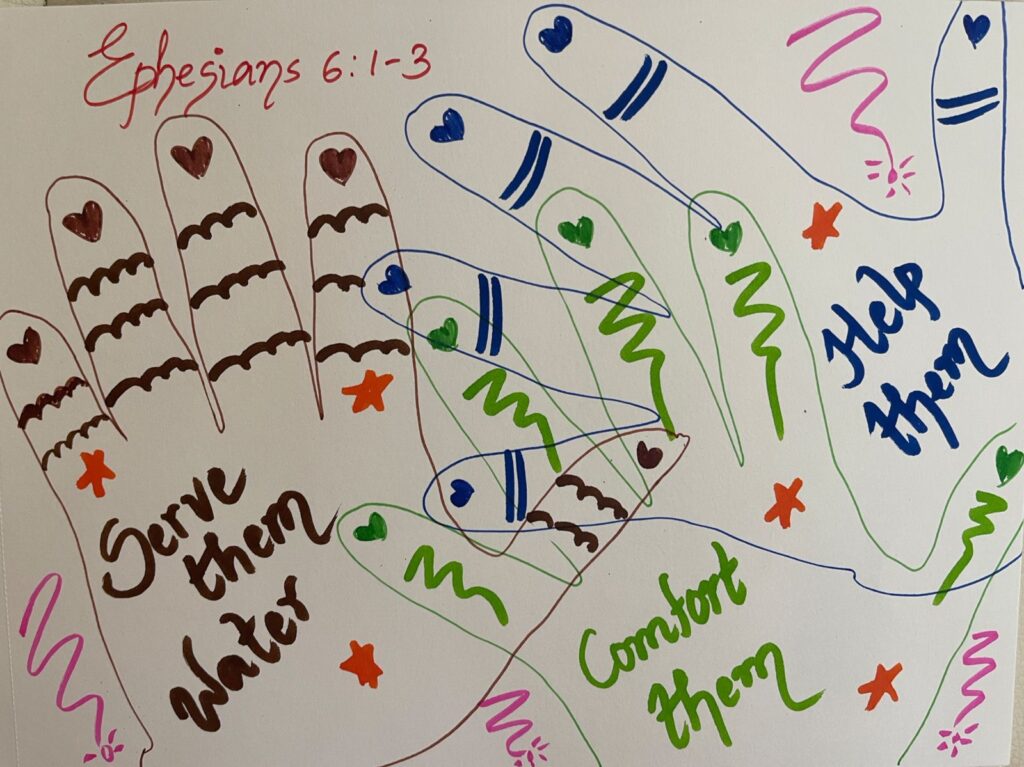 Ephesians 6:1-3
Help
them
Serve
them
Water
Comfort
them